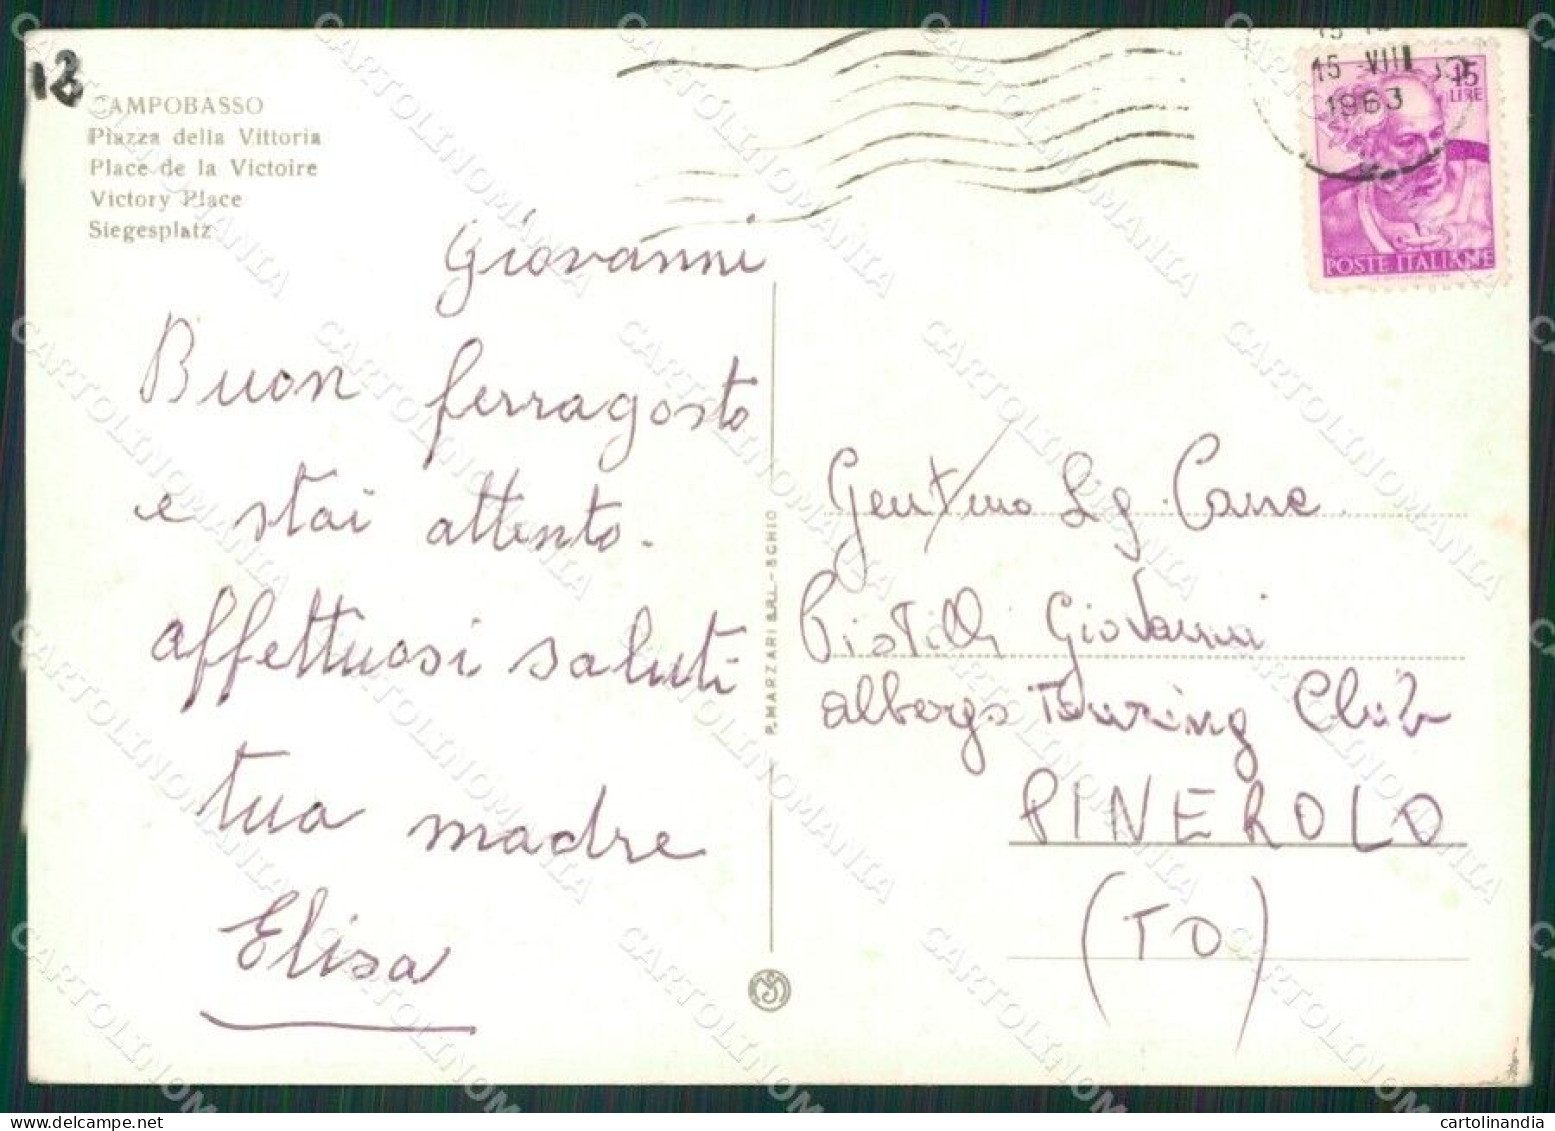 18
CAMPOBASSO
Piazza della Vittoria
Place de la Victoire
Victory Place
Siegesplatz
15 VIII
1963
15
LIRE
POSTE ITALIANE
Giovanni
Buon ferragosto
e stai attento.
affettuosi saluti
tua madre
Elisa
P. MARZARI S.R.L. - SCHIO
Gent/mo Sg. Cane
Pistilli Giovanni
albergo Touring Club
PINEROLO
(TO)
CARTOLINOMANIA
cartolinandia